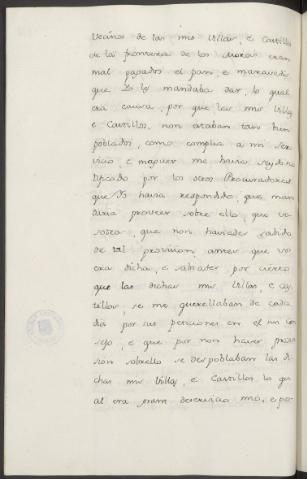 vecinos de las mis Villas, é Castillos
de la frontera de los Moros eran
mal pagados el pan, é maravedis
que Yo les mandaba dar, lo qual
era causa, por que las mis Villas,
é Castillos, non estaban tan bien
poblados, como complia a mi ser
vicio, é maguer me havia seydo no
tificado por los otros Procuradores
que Yo havia respondido, que man
daria proveer sobre ello, que vo
sotros, que non haviades sabido
de tal provision, antes que vos
era dicho, é sabiades por cierto
que las dichas mis Villas, é Cas
tillos, se me querellaban de cada
dia por sus peticiones en el mi Con
sejo, é que por non haver provi
sion sobrello se despoblaban las di
chas mis Villas, é Castillos lo qu
al era gran deservicio mio, é po-